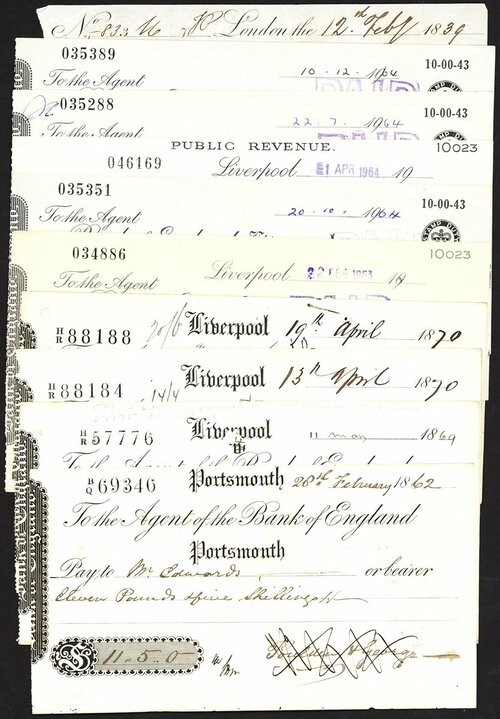 No. 833 London the 12.th Feby 1839
035389 10-00-43
To the Agent 10.12.1964
PAID
035288 10-00-43
To the Agent 22.7.1964
PAID
PUBLIC REVENUE. 10023
046169 Liverpool 21 APR 1964 19
035351 10-00-43
To the Agent 20.10.1964
STAMP DUTY
034886 10023
To the Agent Liverpool 22 FEB 1963 19
H/R 88188 20/6 Liverpool 19th April 1870
H/R 88184 14/4 Liverpool 13th April 1870
H/R 57776 Liverpool 11 may 1869
B/Q 69346 Portsmouth 28th February 1862
To the Agent of the Bank of England
Portsmouth
Pay to Mr. Edwards or bearer
Eleven Pounds & five Shillings
£ 11.5.0